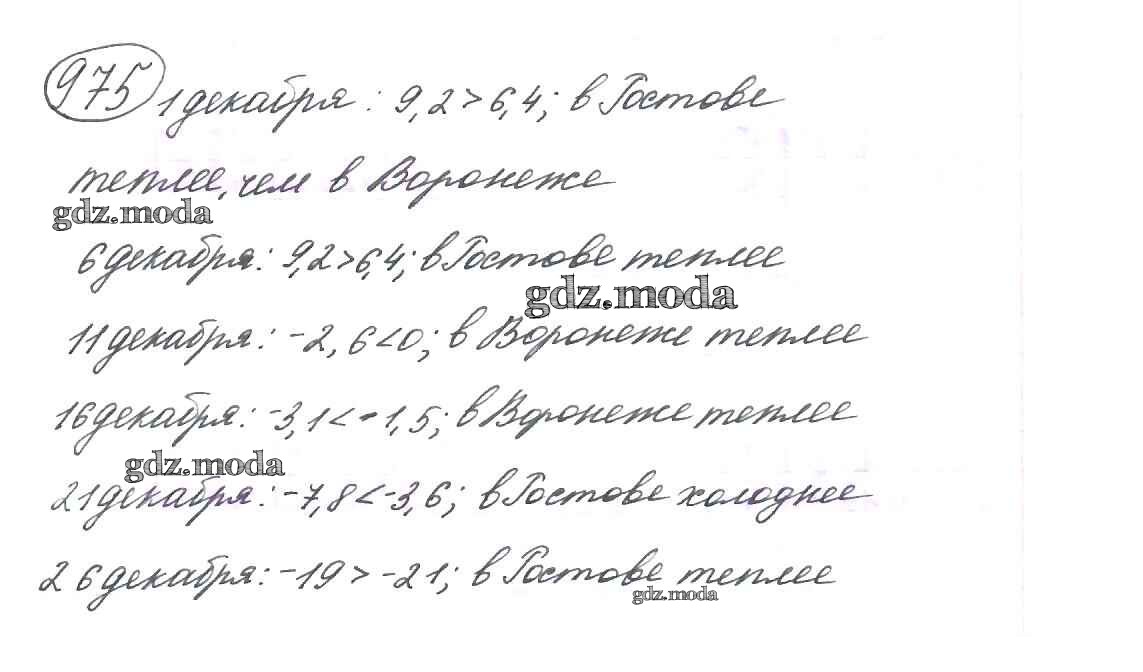 975 1 декабря: 9,2 > 6,4; в Ростове
теплее, чем в Воронеже
gdz.moda
6 декабря: 9,2 > 6,4; в Ростове теплее
gdz.moda
11 декабря: -2,6 < 0; в Воронеже теплее
16 декабря: -3,1 < -1,5; в Воронеже теплее
gdz.moda
21 декабря: -7,8 < -3,6; в Ростове холоднее
26 декабря: -19 > -21; в Ростове теплее
gdz.moda